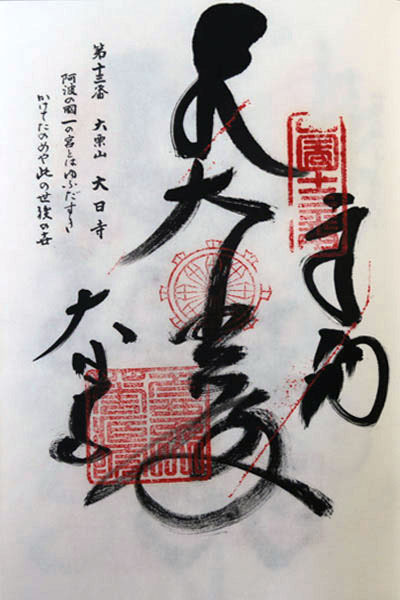 奉納
大悲殿
大日寺
第十三番 大栗山 大日寺
阿波の国一の宮とはゆふだすき
かけてたのめや此の世後の世